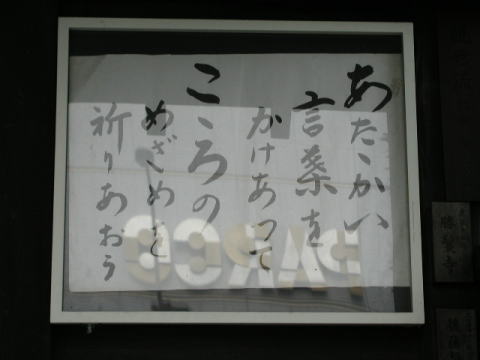 あたゝかい
言葉を
かけあって
こゝろの
めざめを
祈りあおう
PARCO
勝誓寺